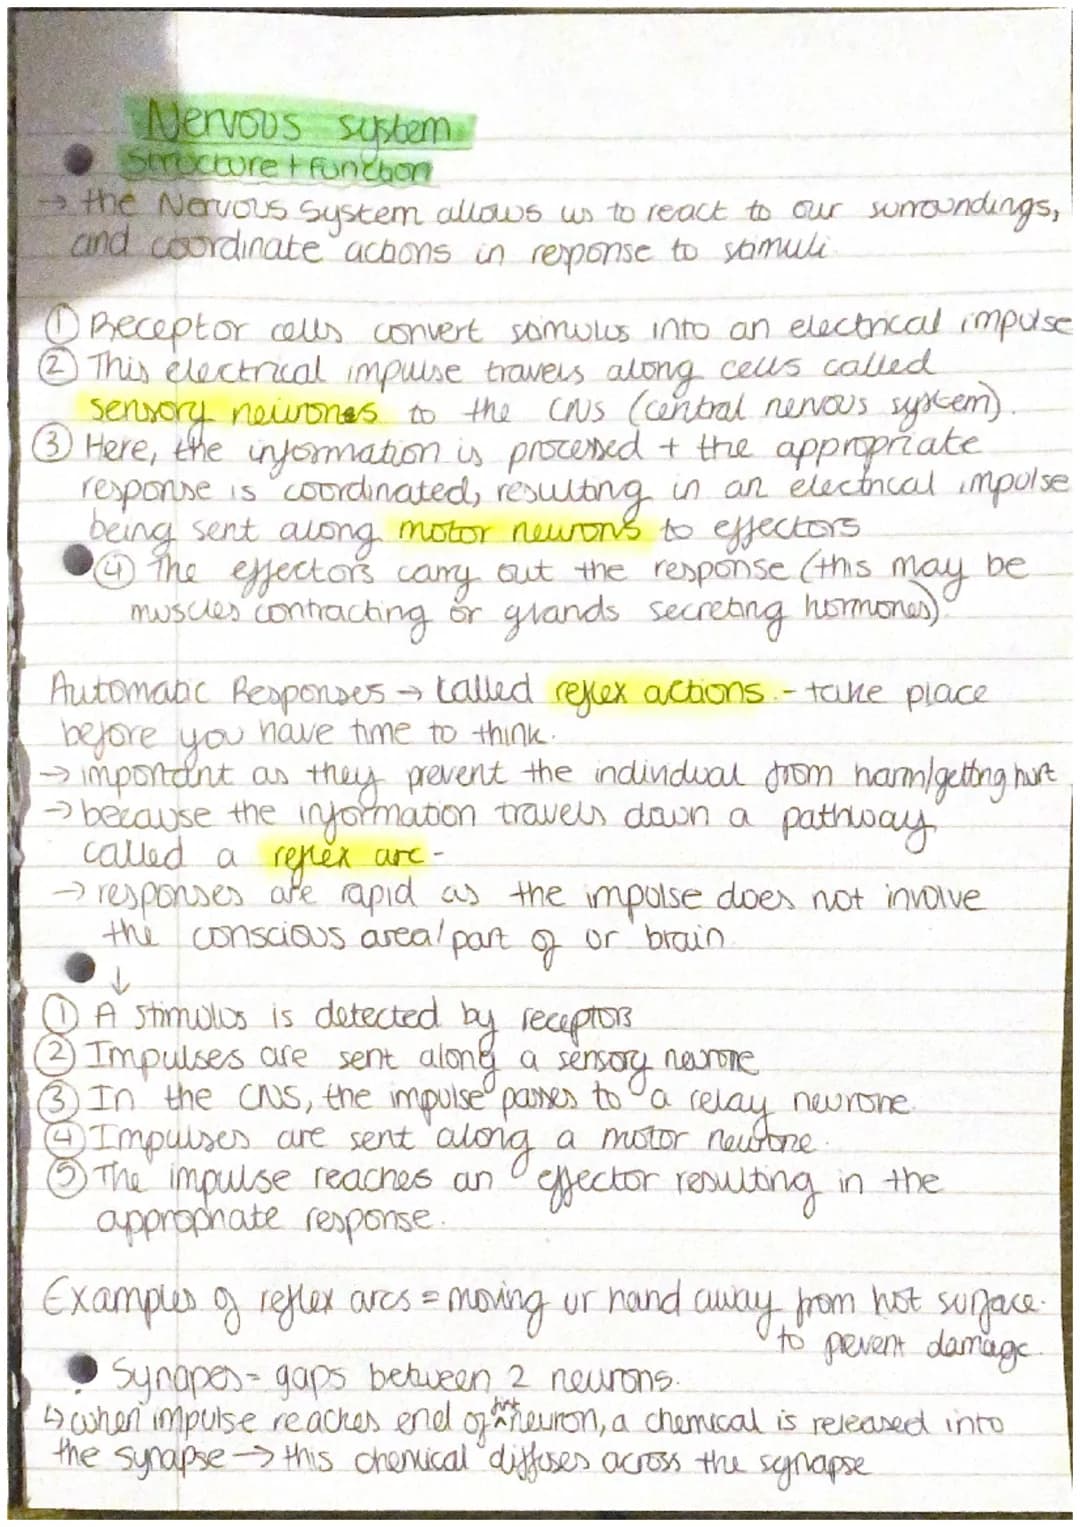 Nervous system
Structure + Function
→ the Nervous System allows us to react to our surroundings,
and coordinate actions in response to stimuli
① Receptor cells convert stimulus into an electrical impulse
② This electrical impulse travels along cells called
sensory neurones to the CNS (central nervous system).
③ Here, the information is processed + the appropriate
response is coordinated, resulting in an electrical impulse
being sent along motor neurons to effectors
④ The effectors carry out the response (this may be
muscles contracting or glands secreting hormones)
Automatic Responses → called reflex actions - take place
before you have time to think.
→ important as they prevent the individual from harm/getting hurt
→ because the information travels down a pathway
called a reflex arc -
→ responses are rapid as the impulse does not involve
the conscious area/part of ur brain
↓
① A stimulus is detected by receptors
② Impulses are sent along a sensory neurone
③ In the CNS, the impulse passes to a relay neurone.
④ Impulses are sent along a motor neurone.
⑤ The impulse reaches an effector resulting in the
appropriate response.
Examples of reflex arcs = moving ur hand away from hot surface.
to prevent damage.
Synapes = gaps between 2 neurons.
↳ when impulse reaches end of first neuron, a chemical is released into
the synapse → this chemical diffuses across the synapse